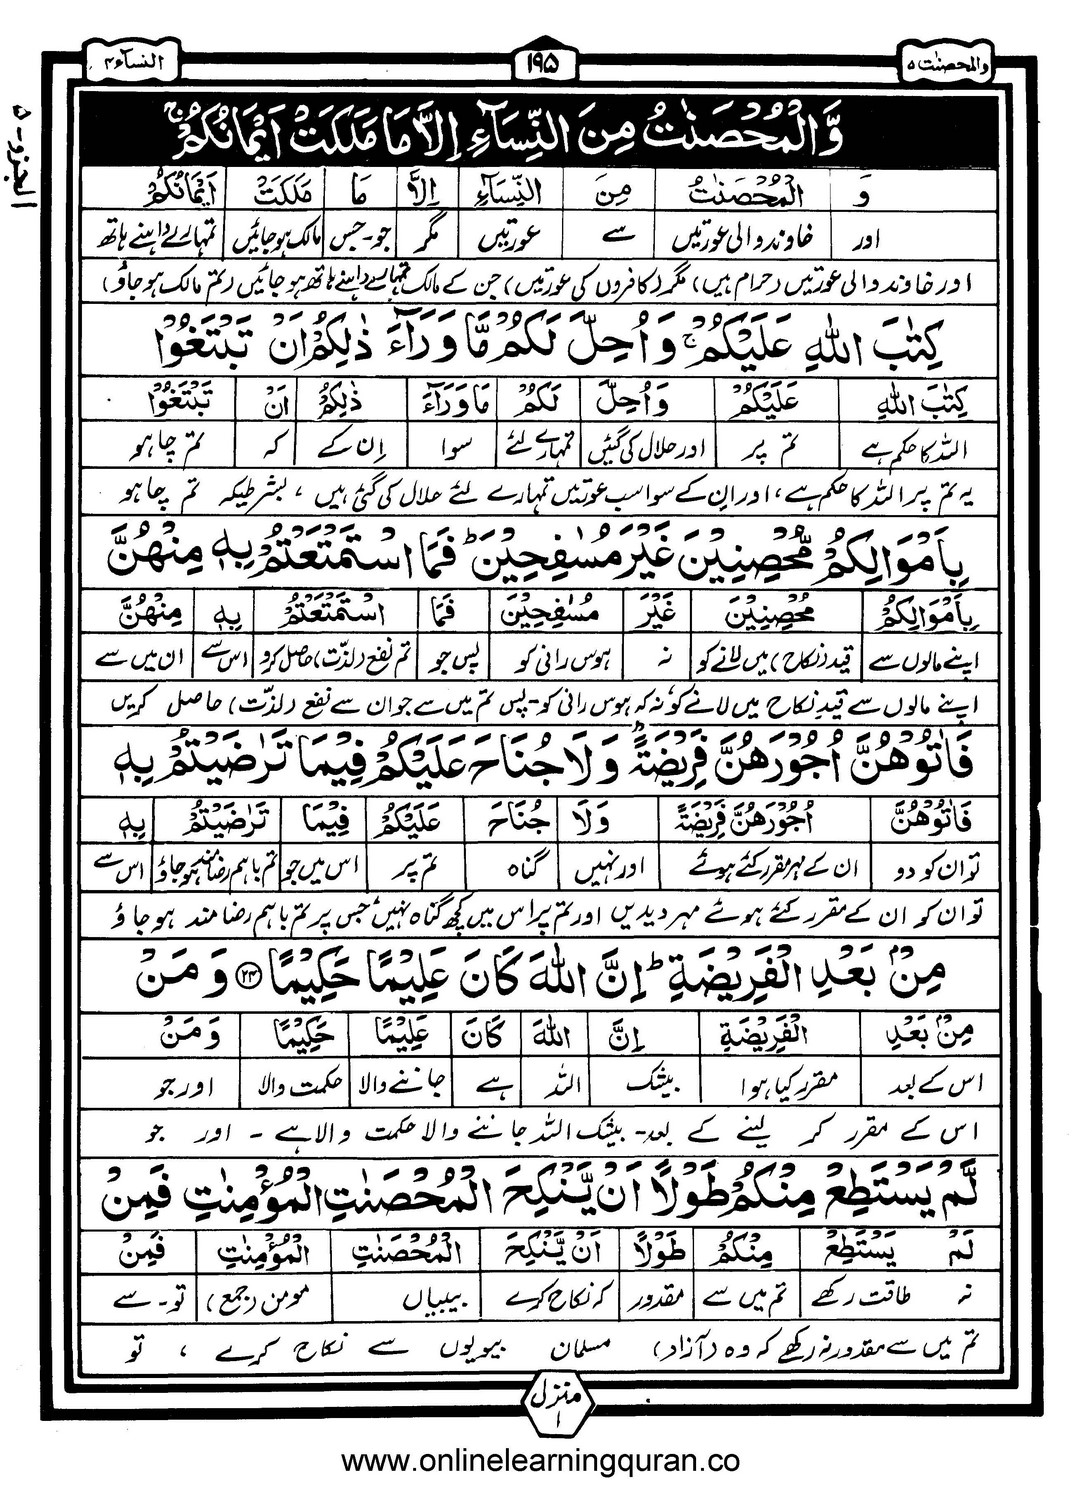 والمحصنٰت ۵ ۱۹۵ النسآء ۴
الجزو - ۵
وَّالْمُحْصَنٰتُ مِنَ النِّسَآءِ اِلَّا مَا مَلَكَتْ اَیْمَانُكُمْ ۚ
وَ الْمُحْصَنٰتُ مِنَ النِّسَآءِ اِلَّا مَا مَلَكَتْ اَیْمَانُكُمْ
اور خاوند والی عورتیں سے عورتیں مگر جو-جس مالک ہو جائیں تمہارے داہنے ہاتھ
اور خاوند والی عورتیں (حرام ہیں) مگر (کافروں کی عورتیں) جن کے مالک تمہارے داہنے ہاتھ ہو جائیں (تم مالک ہو جاؤ)
كِتٰبَ اللّٰهِ عَلَیْكُمْ ۚ وَ اُحِلَّ لَكُمْ مَّا وَرَآءَ ذٰلِكُمْ اَنْ تَبْتَغُوْا
كِتٰبَ اللّٰهِ عَلَیْكُمْ وَ اُحِلَّ لَكُمْ مَا وَرَآءَ ذٰلِكُمْ اَنْ تَبْتَغُوْا
اللہ کا حکم ہے تم پر اور حلال کی گئیں تمہارے لئے سوا اِن کے کہ تم چاہو
یہ تم پر اللہ کا حکم ہے، اور ان کے سوا سب عورتیں تمہارے لئے حلال کی گئی ہیں، بشرطیکہ تم چاہو
بِاَمْوَالِكُمْ مُّحْصِنِیْنَ غَیْرَ مُسٰفِحِیْنَ ؕ فَمَا اسْتَمْتَعْتُمْ بِهٖ مِنْهُنَّ
بِاَمْوَالِكُمْ مُحْصِنِیْنَ غَیْرَ مُسٰفِحِیْنَ فَمَا اسْتَمْتَعْتُمْ بِهٖ مِنْهُنَّ
اپنے مالوں سے قید (نکاح) میں لانے کو نہ ہوس رانی کو پس جو تم نفع (لذّت) حاصل کرو اس سے ان میں سے
اپنے مالوں سے قیدِ نکاح میں لانے کو نہ کہ ہوس رانی کو - پس تم میں سے جو ان سے نفع (لذّت) حاصل کریں
فَاٰتُوْهُنَّ اُجُوْرَهُنَّ فَرِیْضَةً ؕ وَ لَا جُنَاحَ عَلَیْكُمْ فِیْمَا تَرٰضَیْتُمْ بِهٖ
فَاٰتُوْهُنَّ اُجُوْرَهُنَّ فَرِیْضَةً وَلَا جُنَاحَ عَلَیْكُمْ فِیْمَا تَرٰضَیْتُمْ بِهٖ
تو ان کو دو ان کے مہر مقرر کئے ہوئے اور نہیں گناہ تم پر اس میں جو تم باہم رضامند ہو جاؤ اس سے
تو ان کو ان کے مقرر کئے ہوئے مہر دیدیں اور تم پر اس میں کچھ گناہ نہیں جس پر تم باہم رضا مند ہو جاؤ
مِنْۢ بَعْدِ الْفَرِیْضَةِ ؕ اِنَّ اللّٰهَ كَانَ عَلِیْمًا حَكِیْمًا ﴿۲۴﴾ وَ مَنْ
مِنْۢ بَعْدِ الْفَرِیْضَةِ اِنَّ اللّٰهَ كَانَ عَلِیْمًا حَكِیْمًا وَ مَنْ
اس کے بعد مقرر کیا ہوا بیشک اللہ ہے جاننے والا حکمت والا اور جو
اس کے مقرر کر لینے کے بعد - بیشک اللہ جاننے والا حکمت والا ہے - اور جو
لَّمْ یَسْتَطِعْ مِنْكُمْ طَوْلًا اَنْ یَّنْكِحَ الْمُحْصَنٰتِ الْمُؤْمِنٰتِ فَمِنْ
لَمْ یَسْتَطِعْ مِنْكُمْ طَوْلًا اَنْ یَّنْكِحَ الْمُحْصَنٰتِ الْمُؤْمِنٰتِ فَمِنْ
نہ طاقت رکھے تم میں سے مقدور کہ نکاح کرے بیبیاں مومن (جمع) تو - سے
تم میں سے مقدور نہ رکھے کہ وہ (آزاد) مسلمان بیویوں سے نکاح کرے، تو
منزل ۱
www.onlinelearningquran.co